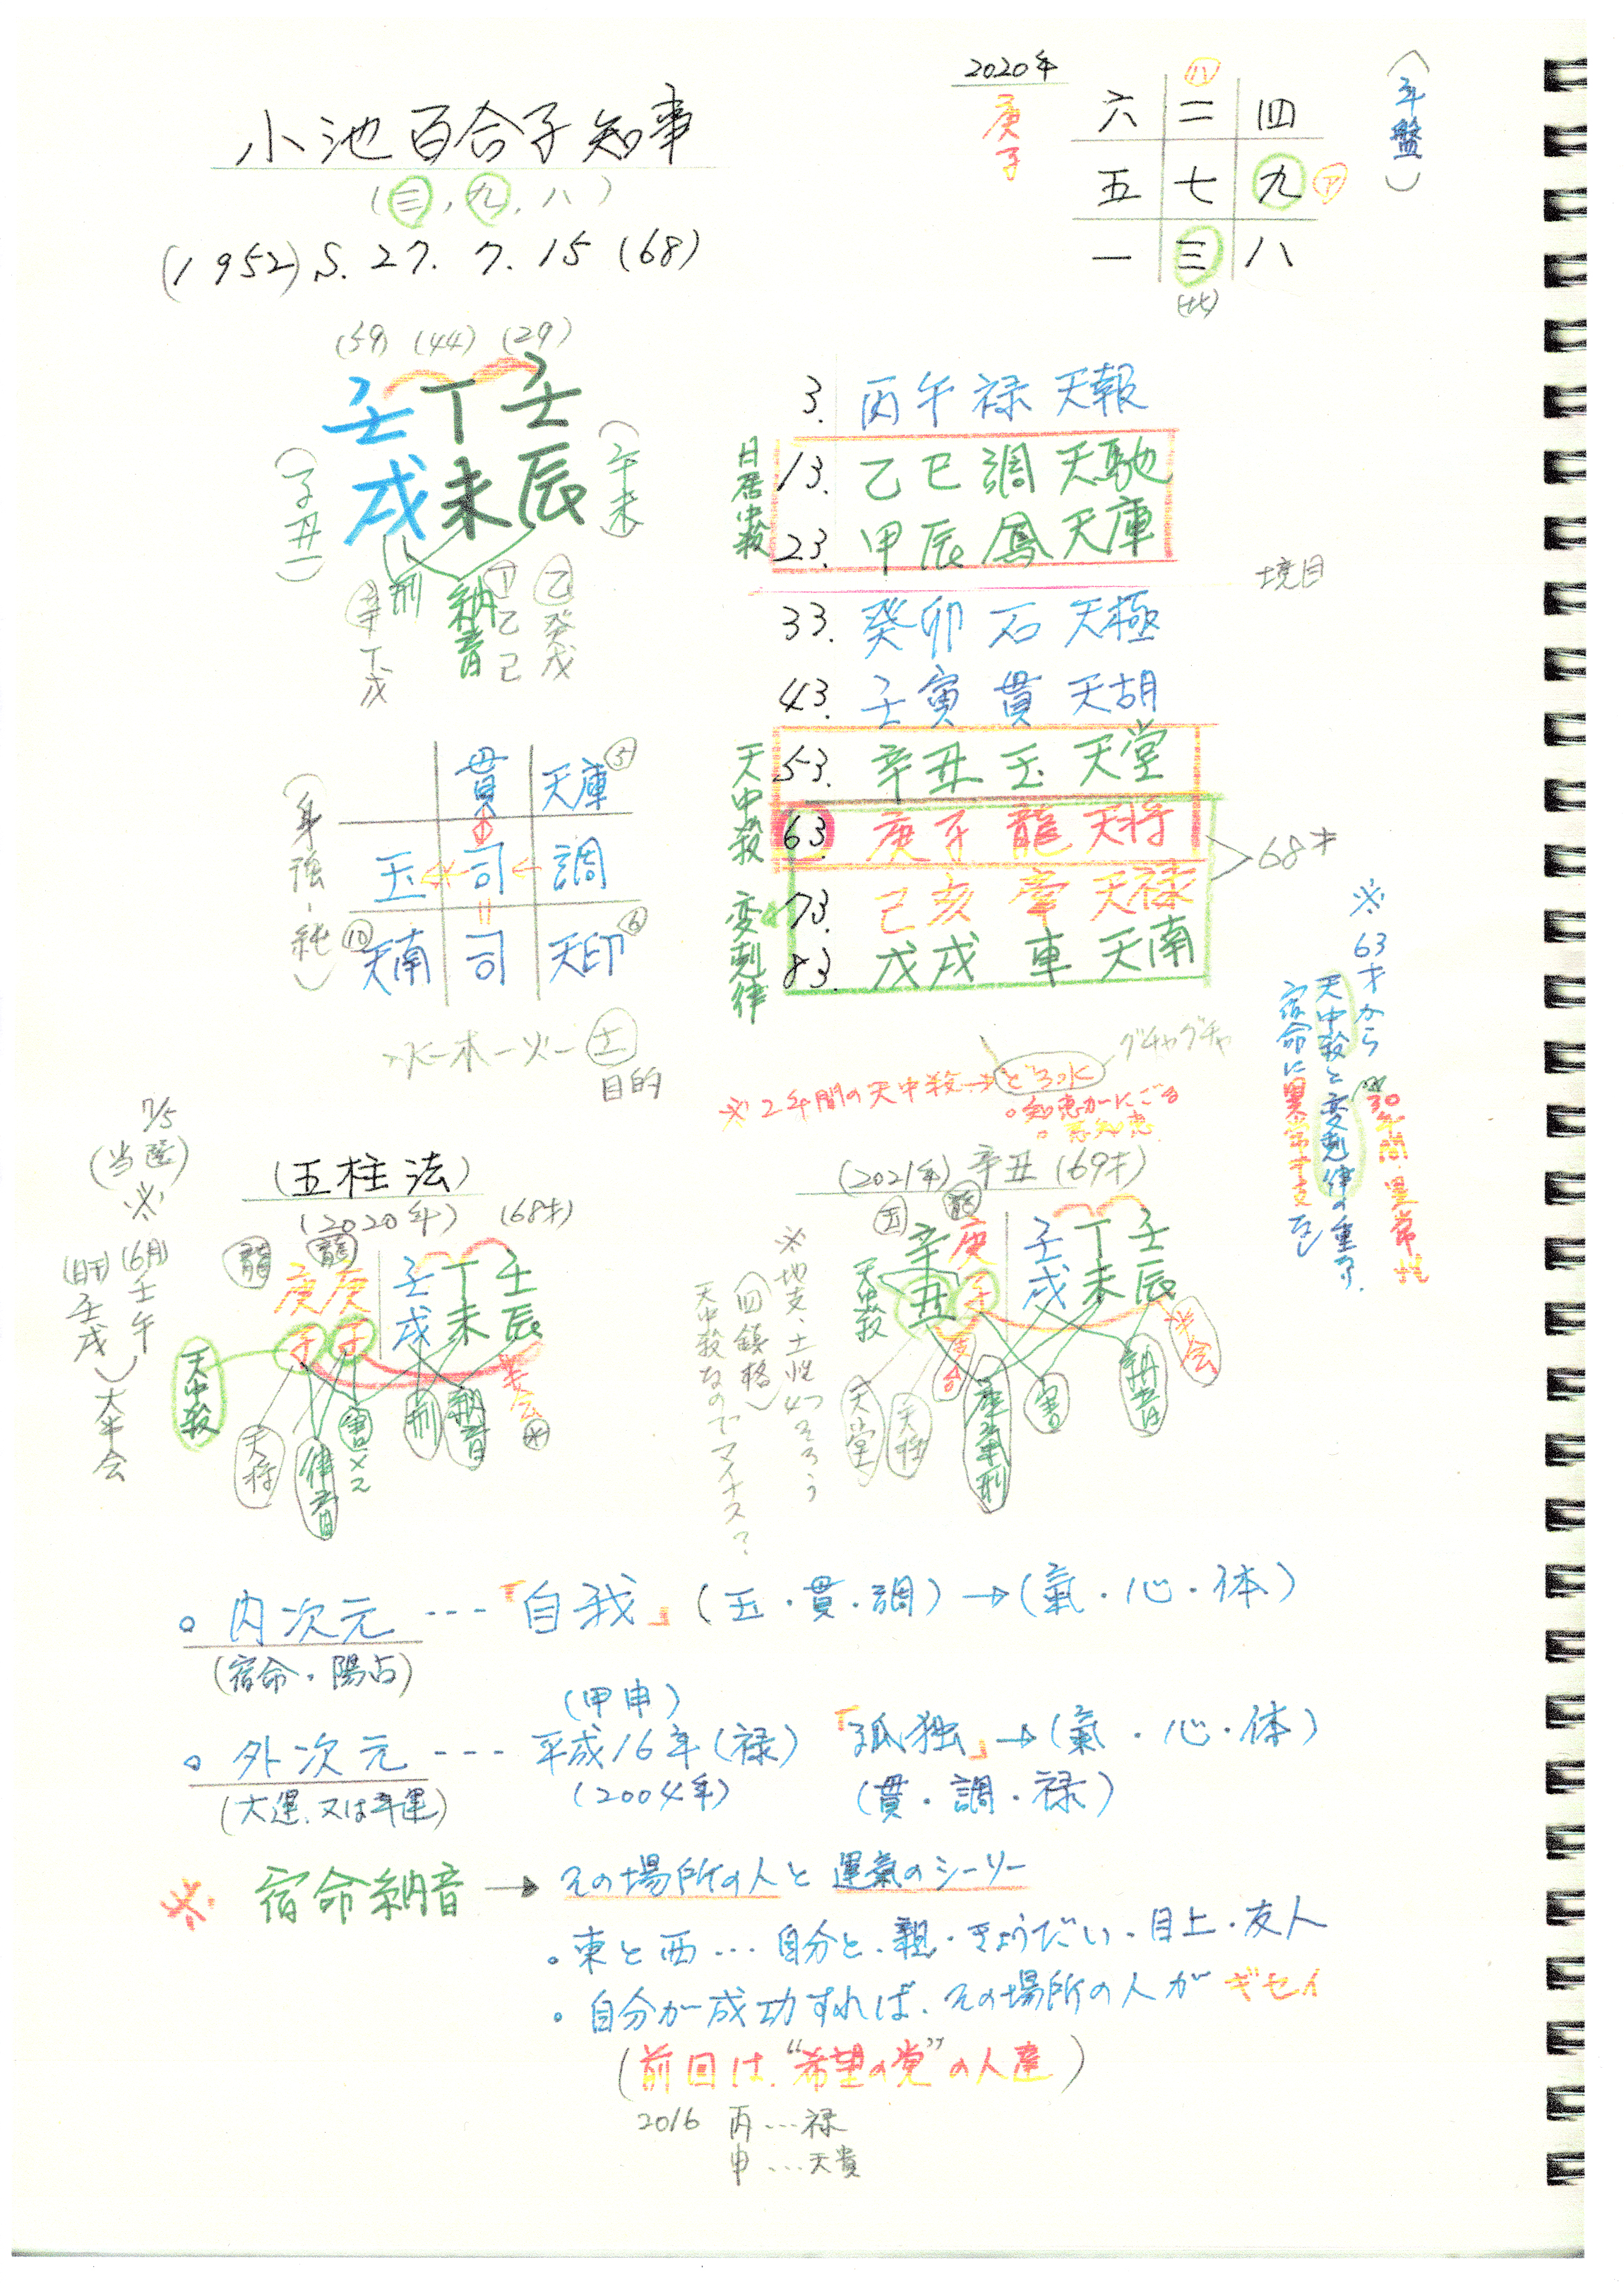 小池百合子知事
(三, 九, 八)
(1952) S. 27. 7. 15 (68)
2020年
庚子
(年盤)
六 二 四
五 七 九 ㋐
一 三 八
(59) (44) (29)
壬 丁 壬
戌 未 辰
(子丑)
(午未)
刑
納音
辛丁戊
丁乙己
乙癸戊
3. 丙午 禄 天報
13. 乙巳 調 天馳
23. 甲辰 鳳 天庫
33. 癸卯 石 天極
43. 壬寅 貫 天胡
53. 辛丑 玉 天堂
63. 庚子 龍 天将
73. 己亥 牽 天禄
83. 戊戌 車 天南
日居中殺
境目
天中殺
変剋律
68才
(身強-純)
貫 天庫 ⑤
玉 司 調
⑩ 天南 司 天印 ⑥
水-木-火-土
目的
※2年間の天中殺→どろ水
グチャグチャ
。知恵がにごる
。悪知恵
※63才から
天中殺と変剋律の重なり。
宿命に異常干支なし
※30年間異常性
7/5
(当選)
※
(6月)壬午
(日干)壬戌
大半会
(五柱法)
(2020年) (68才)
龍 龍
庚 庚 壬 丁 壬
子 子 戌 未 辰
天中殺
天将
律音
害×2
刑
納音
半会
水
(2021年) 辛丑 (69才)
玉 龍
辛 庚 壬 丁 壬
丑 子 戌 未 辰
天中殺
※地支・土性4つそろう
(四鎮格)
天中殺なのでマイナス?
天堂
天将
支合
庫気刑
害
納音
半会
。内次元 ---「自我」(玉・貫・調)→(氣・心・体)
(宿命・陽占)
(甲申)
。外次元 --- 平成16年(禄)「孤独」→(氣・心・体)
(大運、又は年運) (2004年) (貫・調・禄)
※ 宿命納音 → その場所の人と運氣のシーソー
・東と西…自分と、親・きょうだい、目上・友人
・自分が成功すれば、その場所の人がギセイ
(前回は、“希望の党”の人達)
2016 丙…禄
申…天貴